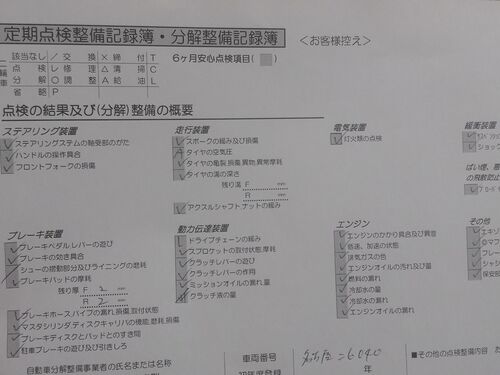 定期点検整備記録簿・分解整備記録簿 <お客様控え>
該当なし / 交換 × 締付 T
点検 レ 修理 △ 清掃 C
分解 ○ 調整 A 給油 L
省略 P
6ヶ月安心点検項目( )
点検の結果及び(分解)整備の概要
ステアリング装置
ステアリングシステムの軸受部のがた
ハンドルの操作具合
フロントフォークの損傷
走行装置
スポークの緩み及び損傷
タイヤの空気圧
タイヤの亀裂,損傷,異物,異常摩耗
タイヤの溝の深さ
残り溝 F mm
R mm
アクスルシャフトナットの緩み
電気装置
灯火類の点検
緩衝装置
ショッ
ブレーキ装置
ブレーキペダル,レバーの遊び
ブレーキの効き具合
シューの摺動部分及びライニングの磨耗
ブレーキパッドの摩耗
残り厚 F 2 mm
R 2 mm
ブレーキホース,パイプの漏れ,損傷,取付状態
マスタシリンダ,ディスクキャリパの機能,磨耗,損傷
ブレーキディスクとパッドとのすき間
駐車ブレーキの遊び及び引きしろ
動力伝達装置
ドライブチェーンの緩み
スプロケットの取付状態,摩耗
クラッチレバーの遊び
クラッチレバーの作用
ミッションオイルの漏れ,量
クラッチ液の量
エンジン
エンジンのかかり具合及び異音
低速、加速の状態
排気ガスの色
エンジンオイルの汚れ及び量
燃料の漏れ
冷却水の量
冷却水の漏れ
エンジンオイルの漏れ
その他
自動車分解整備事業者の氏名または名称
車両番号
初年度登録 年
■その他の点検整備内容